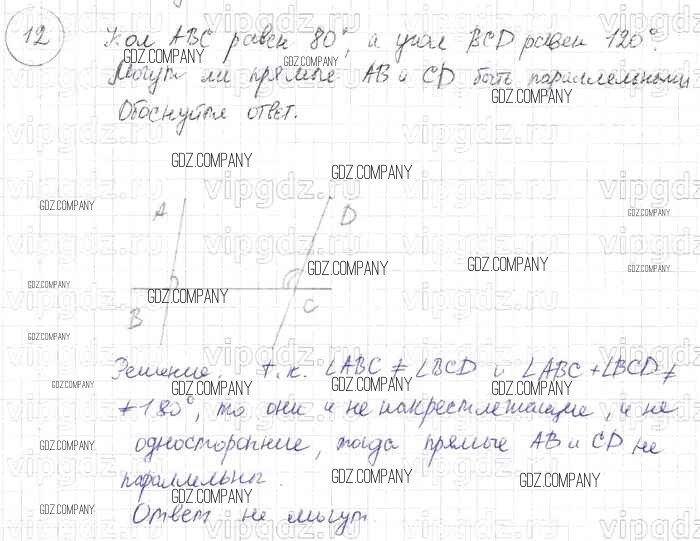 12
Угол ABC равен 80°, а угол BCD равен 120°.
Могут ли прямые AB и CD быть параллельными
Обоснуйте ответ.
A
D
B
C
Решение. т.к. ∠ABC ≠ ∠BCD и ∠ABC + ∠BCD ≠
≠ 180°, то они и не накрестлежащие, и не
односторонние, тогда прямые AB и CD не
параллельны.
Ответ не могут
GDZ.COMPANY
vipgdz.ru